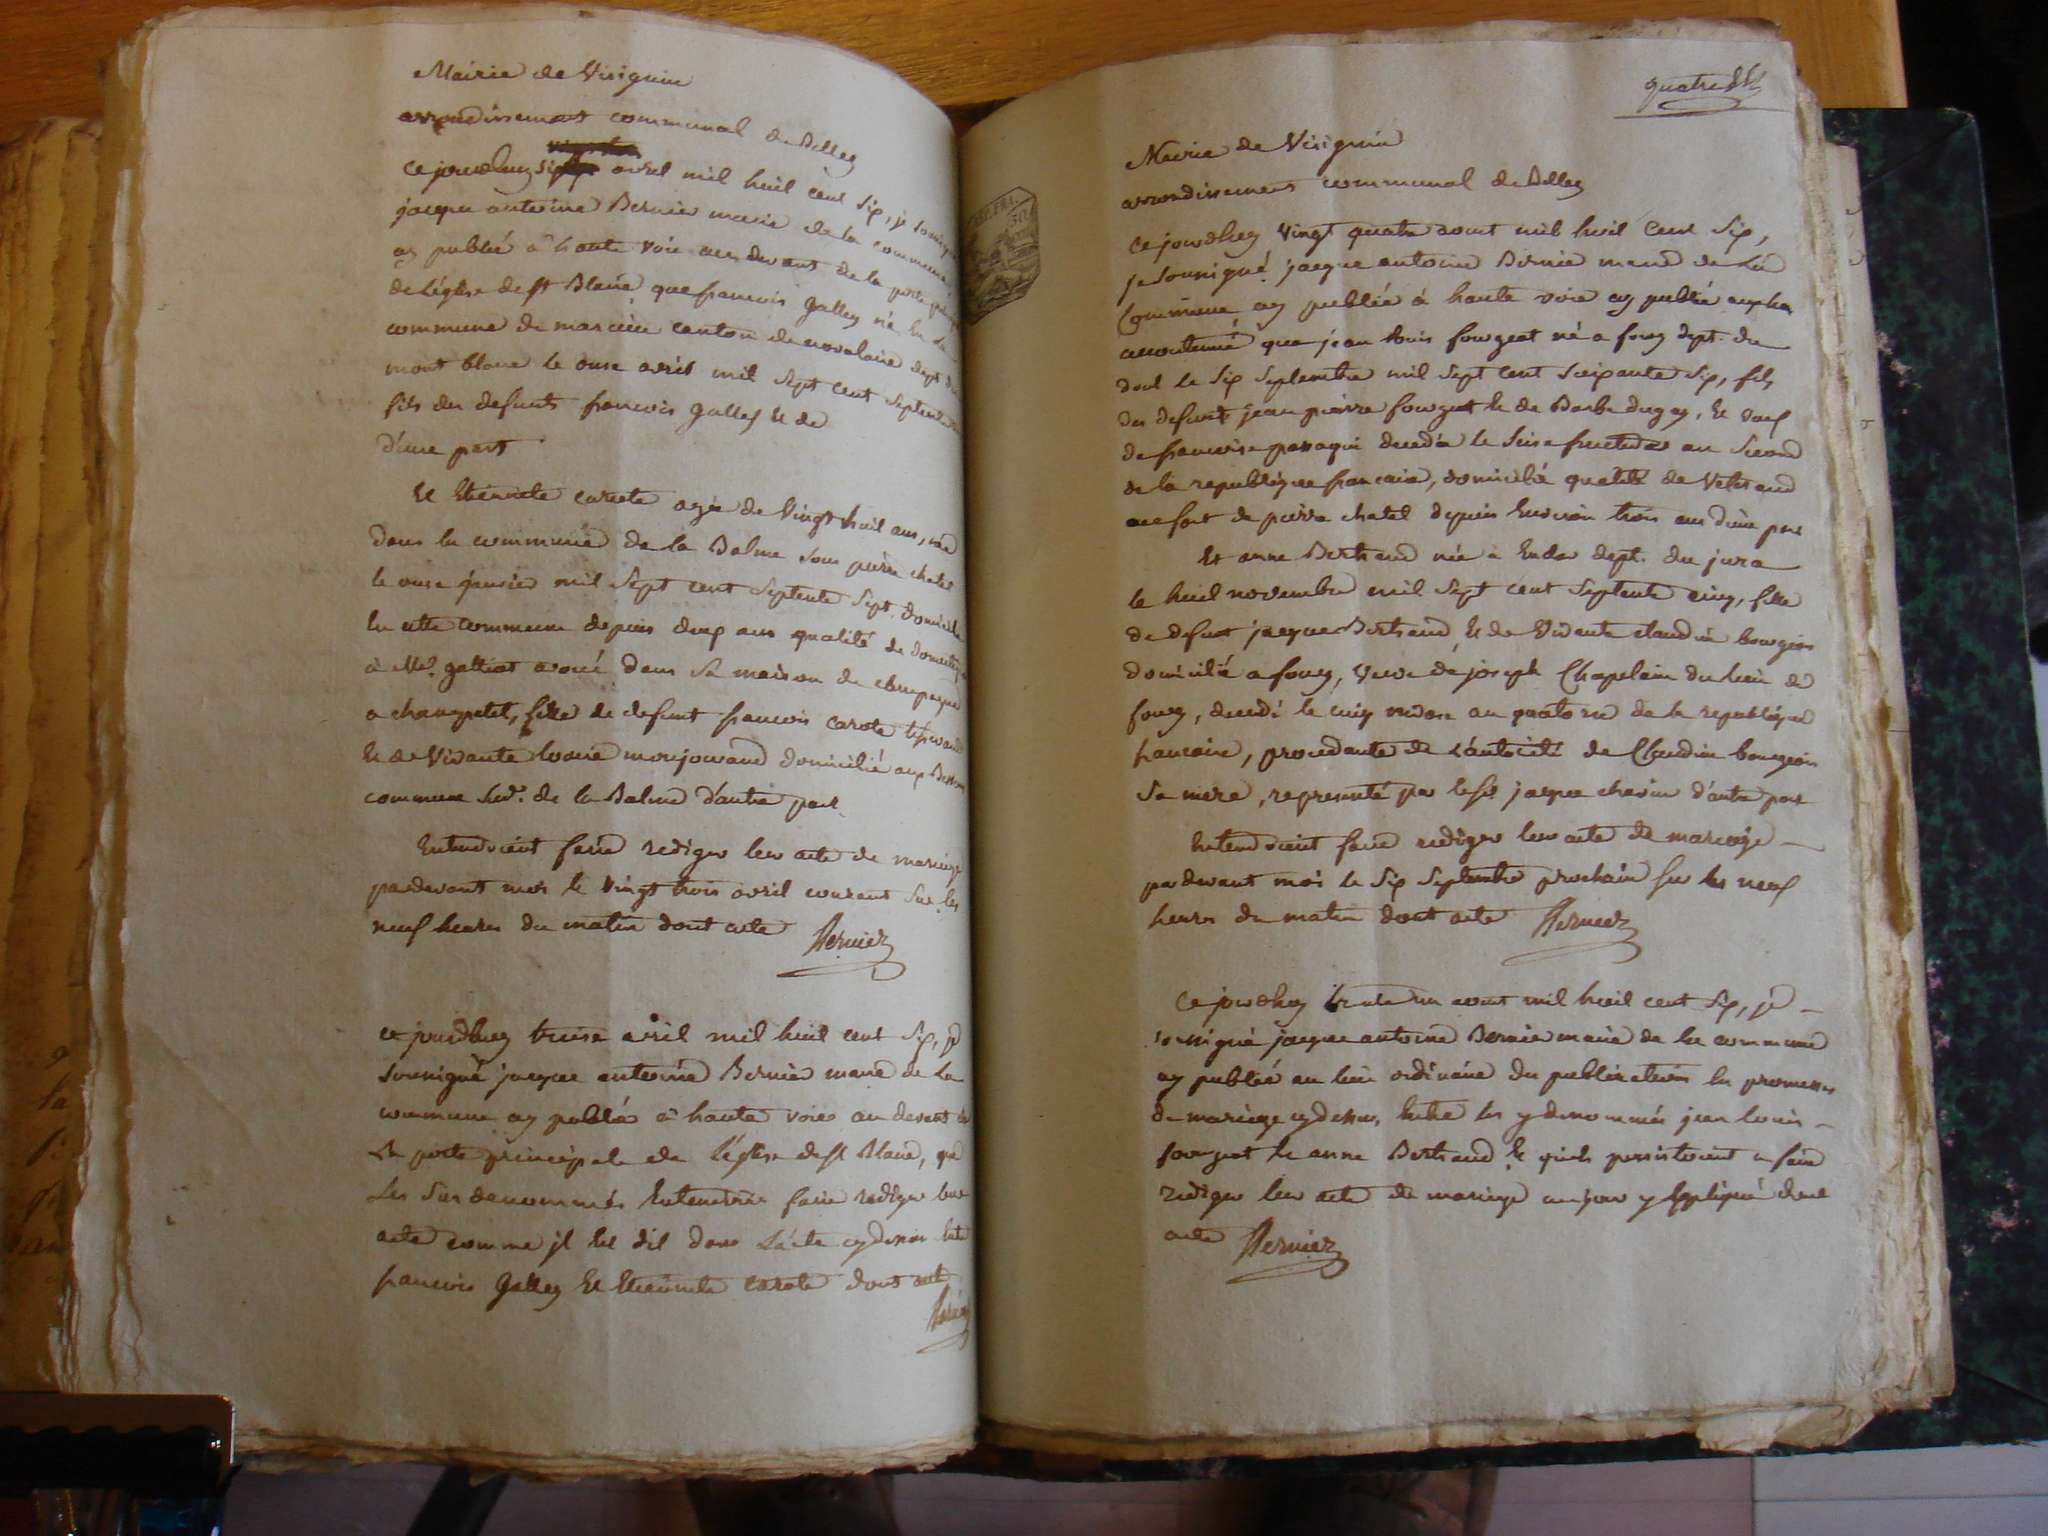 Mairie de Virignin
arrondissement communal de Belley
ce jourdhuy six avril mil huit cent six, je soussigné
jacque antoine Bernier maire de la commune
ay publié à haute voie au devant de la porte
de Léglise de st Blaise que francois Galley né en la
commune de marcieu canton de novalaise dept du
mont blanc le onze avril mil sept cent septente
fils des defunts francois galley et de
d'une part
Et Etiennete carote agée de vingt huit ans, née
dans la commune de la Balme sous pierre chatel
le onze janvier mil sept cent septente sept. domicilié
en cette commune depuis deux ans qualité de domestique
à Mr. galliat avoué dans sa maison de campagne
a champetel, fille de defunt francois carote
Et de vivante louise monjouvand domicilié aux
commune de la Balme d'autre part
Entendoient faire rediger leur acte de mariage
pardevant moi le vingt trois avril courant sur les
neuf heures du matin dont acte Bernier
ce jourdhuy treise avril mil huit cent six, je
soussigné jacque antoine Bernier maire de La
commune ay publié à haute voie au devant de
La porte principale de Léglise de st Blaise, que
Les sus denommés Entendoient faire rediger leur
acte comme jl est dit dans L'acte cy dessus entre
francois Galley Et Etiennete carote dont act
Bernier
quatre
Mairie de Virignin
arrondissement communal de Belley
ce jourdhuy vingt quatre aout mil huit cent six,
je soussigné jacque antoine Bernier maire de La
Commune ay publiée à haute voie ay publié
accoutumé que jean louis fougeat né a foug dept. du
doul le six septembre mil sept cent soixante six, fils
des defunt jean pierre fougeat et de Barbe dugay, Et veuf
de francoise passaqui decedée le seise fructidor an second
de la republique francaise, domicilié qualité de veterand
au fort de pierre chatel depuis Environ trois ans d'une part
Et anne Bertrand née a dept. du jura
le huit novembre mil sept cent septente cinq, fille
de defunt jacque Bertrand Et de vivante claudine bourgeois
domicilié a foug, veuve de joseph Chapelain du lieu de
foug, decedé le cinq nivose an quatorze de la republique
francaise, procedante de L'autorité de Claudine bourgeois
sa mere, representé par le sr jacque d'autre part
Entendoient faire rediger leur acte de mariage
pardevant moi le six septembre prochain sur les neuf
heures du matin dont acte Bernier
Ce jourdhuy trente un aout mil huit cent six, je
soussigné jacque antoine Bernier maire de la commune
ay publiée au lieu ordinaire des publications les promesses
de mariage cy dessus, entre les y denommés jean louis
fougeat et anne Bertrand lequels persistoient a faire
rediger leur acte de mariage au jour y Eppliqué dont
acte Bernier